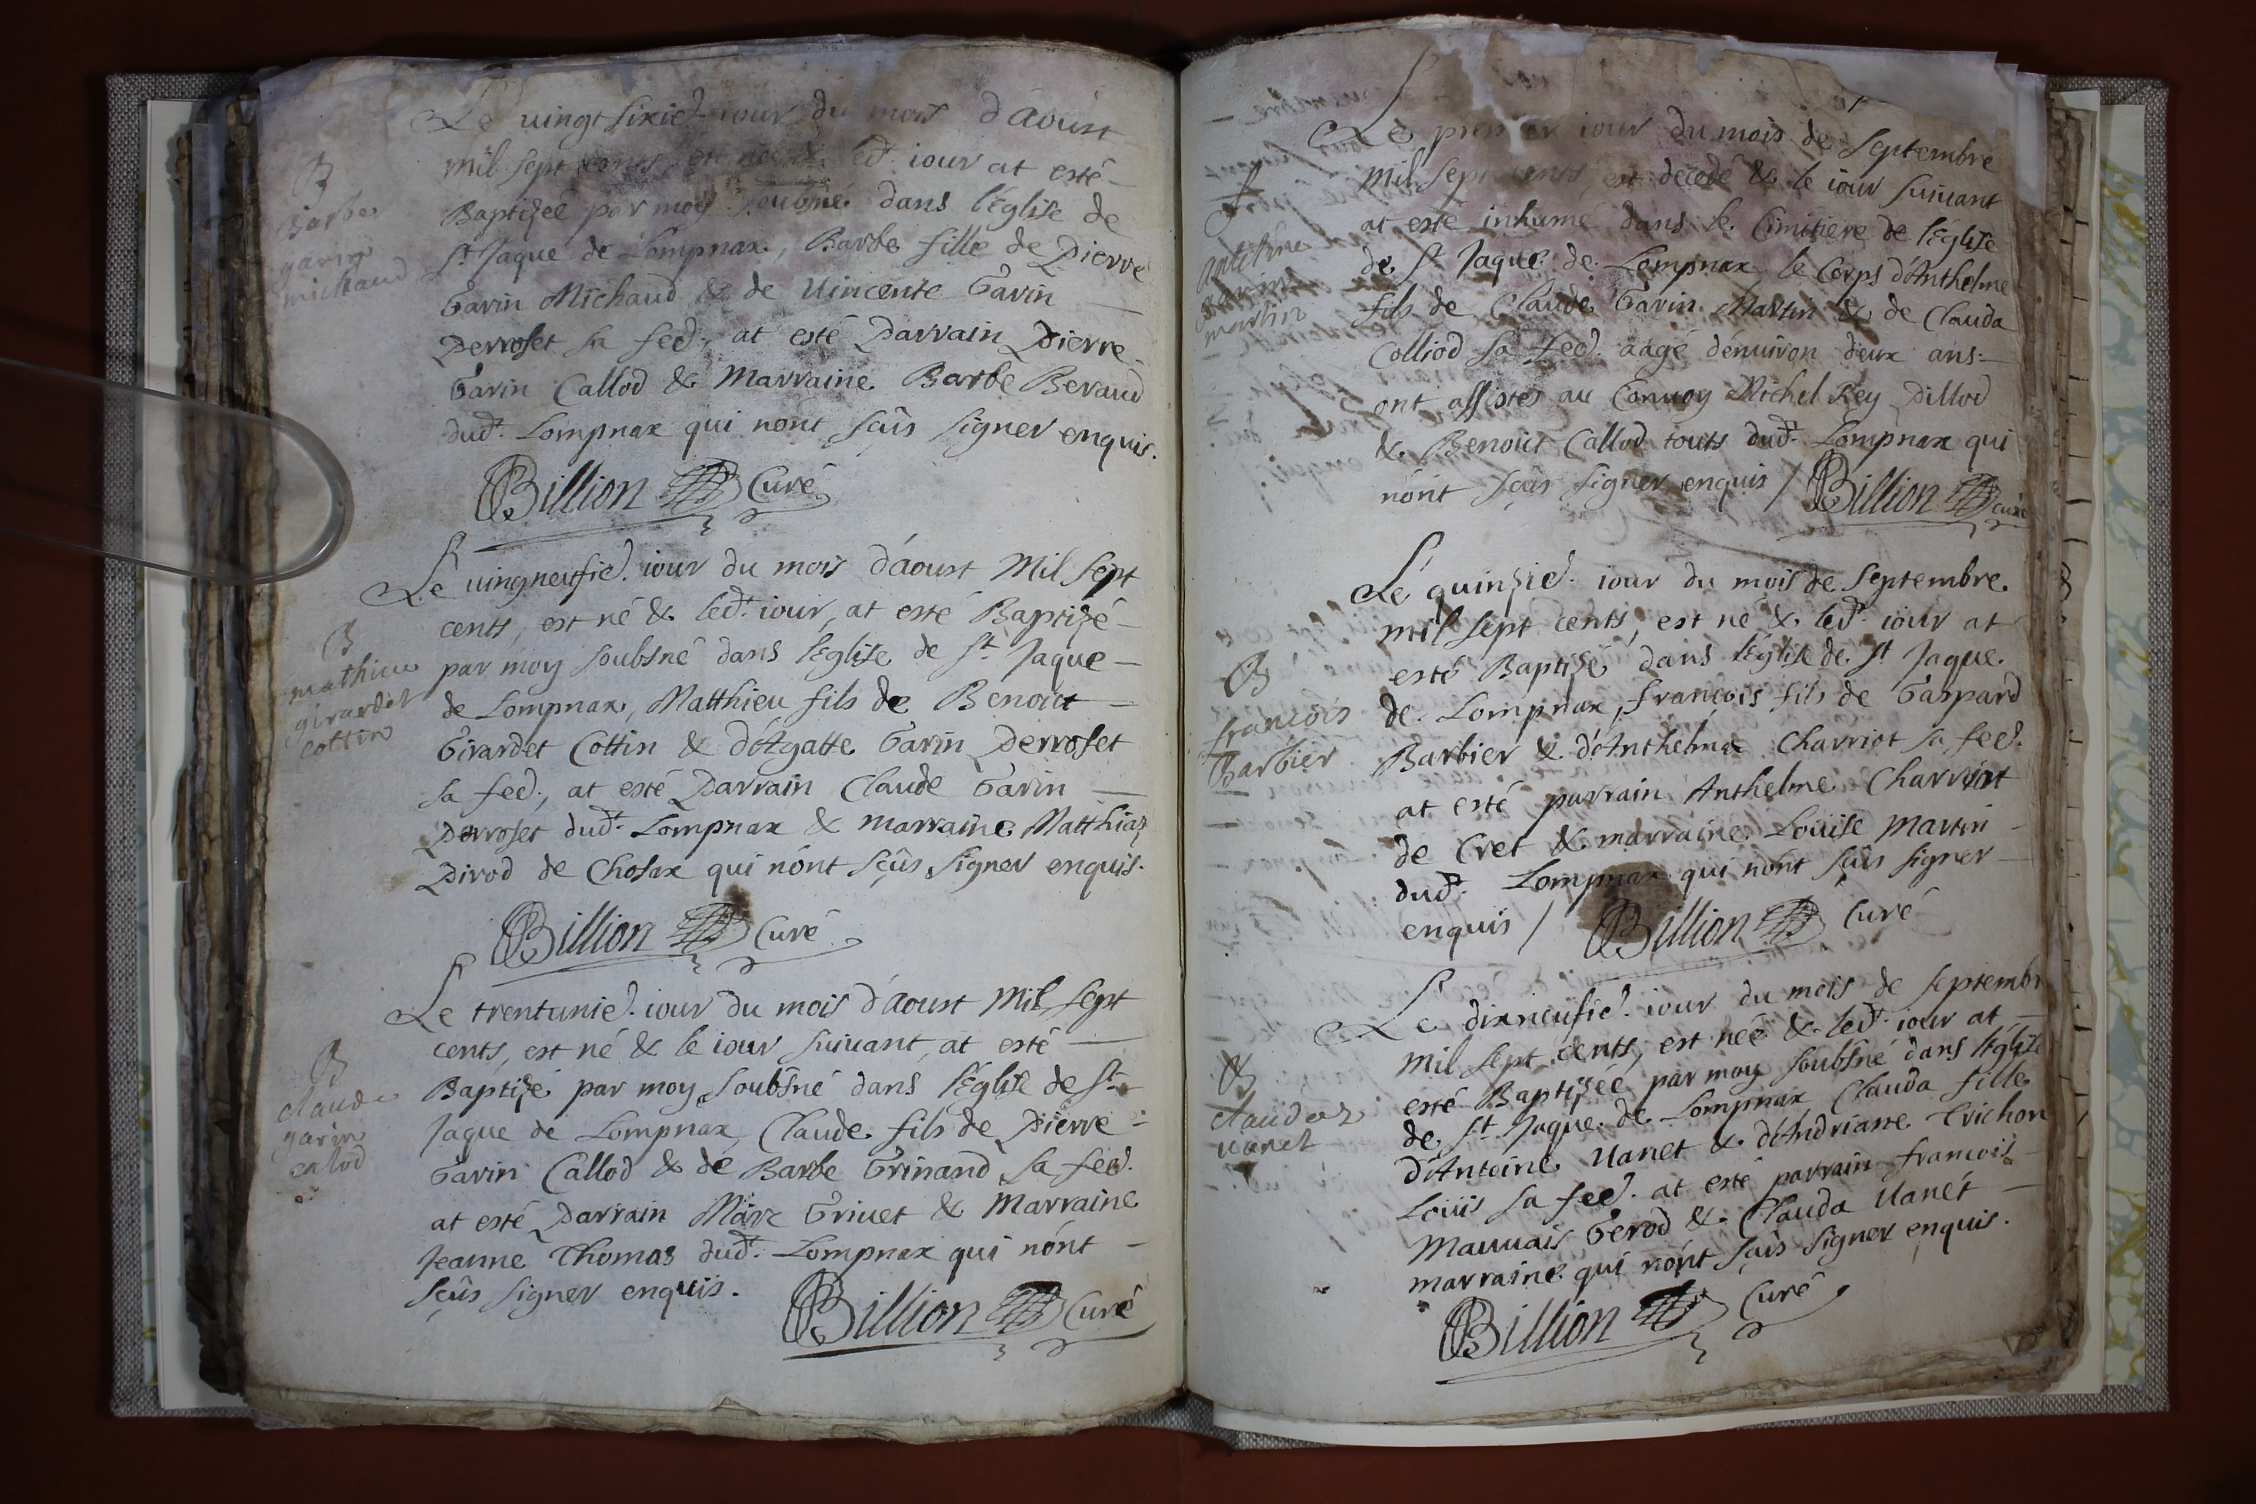 Le vingt sixie. iour du mois d'Aoust
mil sept cents est née & led. iour at esté
Baptizée par moy soubsné dans l'Eglise de
St Jaque de Lompnax, Barbe fille de Pierre
Garin Michaud & de Vincente Garin
Perroset sa fee. at esté Parrain Pierre
Garin Callod & Marraine Barbe Beraud
dud. Lompnax qui nont sçûs signer enquis.
Billion Curé
B
Barbe
garin
michaud
Le vingneufie. iour du mois d'Aoust Mil sept
cents, est né & led. iour, at esté Baptizé
par moy soubsné dans l'Eglise de St Jaque
de Lompnax, Matthieu fils de Benoict
Girardet Cottin & d'Agatte Garin Perroset
sa fee., at esté Parrain Claude Garin
Perroset dud. Lompnax & marraine Matthiaz
Pirod de Chosax qui nont sçûs signer enquis.
Billion Curé
B
mathieu
girardet
cottin
Le trentunie. iour du mois d'Aoust Mil sept
cents, est né & le iour suivant, at esté
Baptizé par moy soubsné dans l'Eglise de St
Jaque de Lompnax, Claude fils de Pierre
Garin Callod & de Barbe Grinand sa fee.
at esté Parrain Marc Grivet & Marraine
Jeanne Thomas dud. Lompnax qui nont
sçûs signer enquis.
Billion Curé
B
claude
garin
calod
Le premier iour du mois de Septembre
Mil Sept cents, est decedé & le iour suivant
at esté inhumé dans le Cimitiere de l'Eglise
de St Jaque de Lompnax le Corps d'Anthelme
fils de Claude Garin Martin & de Clauda
Colliod sa fee. aagé denuiron deux ans
ont assistés au Convoy Michel Rey Pillod
& Benoict Callod touts dud. Lompnax qui
nont sçûs signer enquis / Billion curé
antelme
garin
martin
Le quinzie. iour du mois de Septembre
mil sept cents, est né & led. iour at
esté Baptizé dans l'Eglise de St Jaque
de Lompnax, françois fils de Gaspard
Barbier & d'Anthelma Charriot sa fee.
at esté parrain Anthelme Charriot
de Cret & marraine Louise martin
dud. Lompnax qui nont sçûs signer
enquis / Billion Curé
B
françois
barbier
Le dixneufie. iour du mois de septembr
mil sept cents, est née & led. iour at
esté Baptizée par moy soubsné dans l'Eglise
de St Jaque de Lompnax Clauda fille
d'Antoine Vanet & d'Andriane Trichon
Louis sa fee. at esté parrain françois
Mauvais Gerod & Clauda Vanet
marraine qui nont sçûs signer enquis.
Billion Curé
B
claudaz
vanet